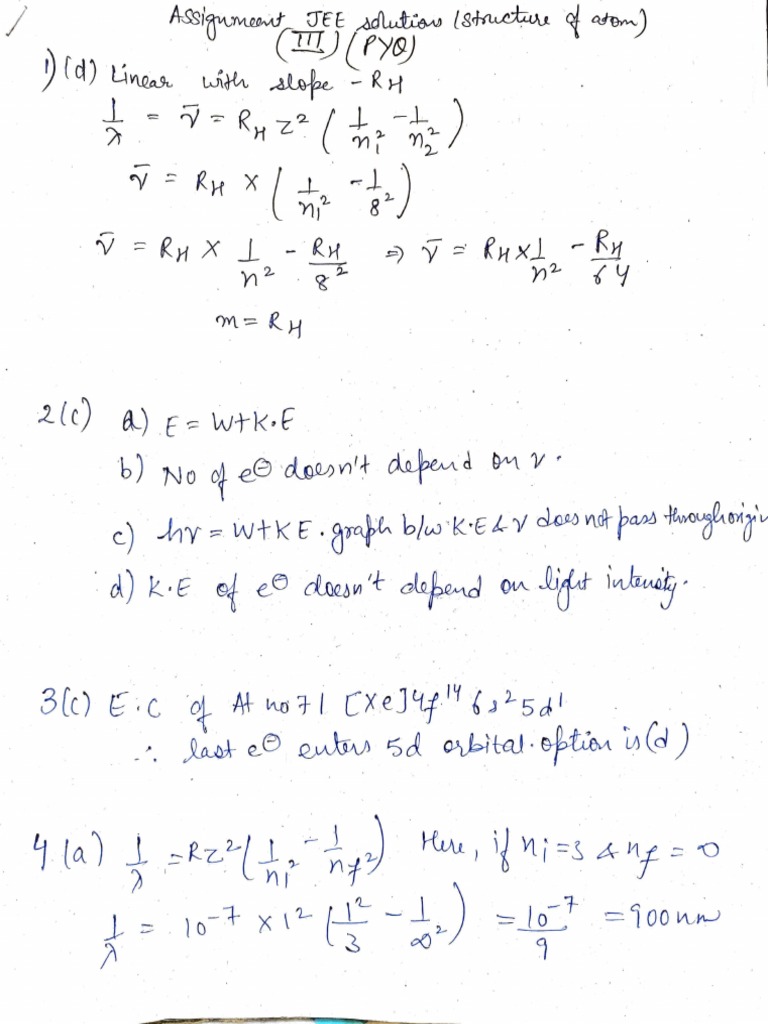 Assignment JEE solutions (structure of atom)
(III) (PYQ)
1) (d) Linear with slope - RH
1/λ = ν̄ = RH Z² ( 1/n₁² - 1/n₂² )
ν̄ = RH × ( 1/n₁² - 1/8² )
ν̄ = RH × 1/n² - RH/8² ⇒ ν̄ = RH × 1/n² - RH/64
m = RH
2 (c) a) E = W + K.E
b) No of e⊖ doesn't depend on ν.
c) hν = W + KE. graph b/w K.E & ν does not pass through origin
d) K.E of e⊖ doesn't depend on light intensity.
3 (c) E.C of At no 71 [Xe] 4f¹⁴ 6s² 5d¹
∴ last e⊖ enters 5d orbital. option is (d)
4. (a) 1/λ = RZ² ( 1/ni² - 1/nf² ) Here, if ni = 3 & nf = ∞
1/λ = 10⁻⁷ × 1² ( 1²/3 - 1/∞² ) = 10⁻⁷/9 = 900 nm